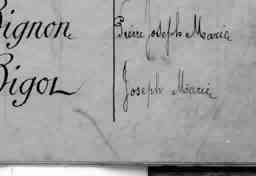 Bignon Pierre Joseph Marie
Bigot Joseph Marie